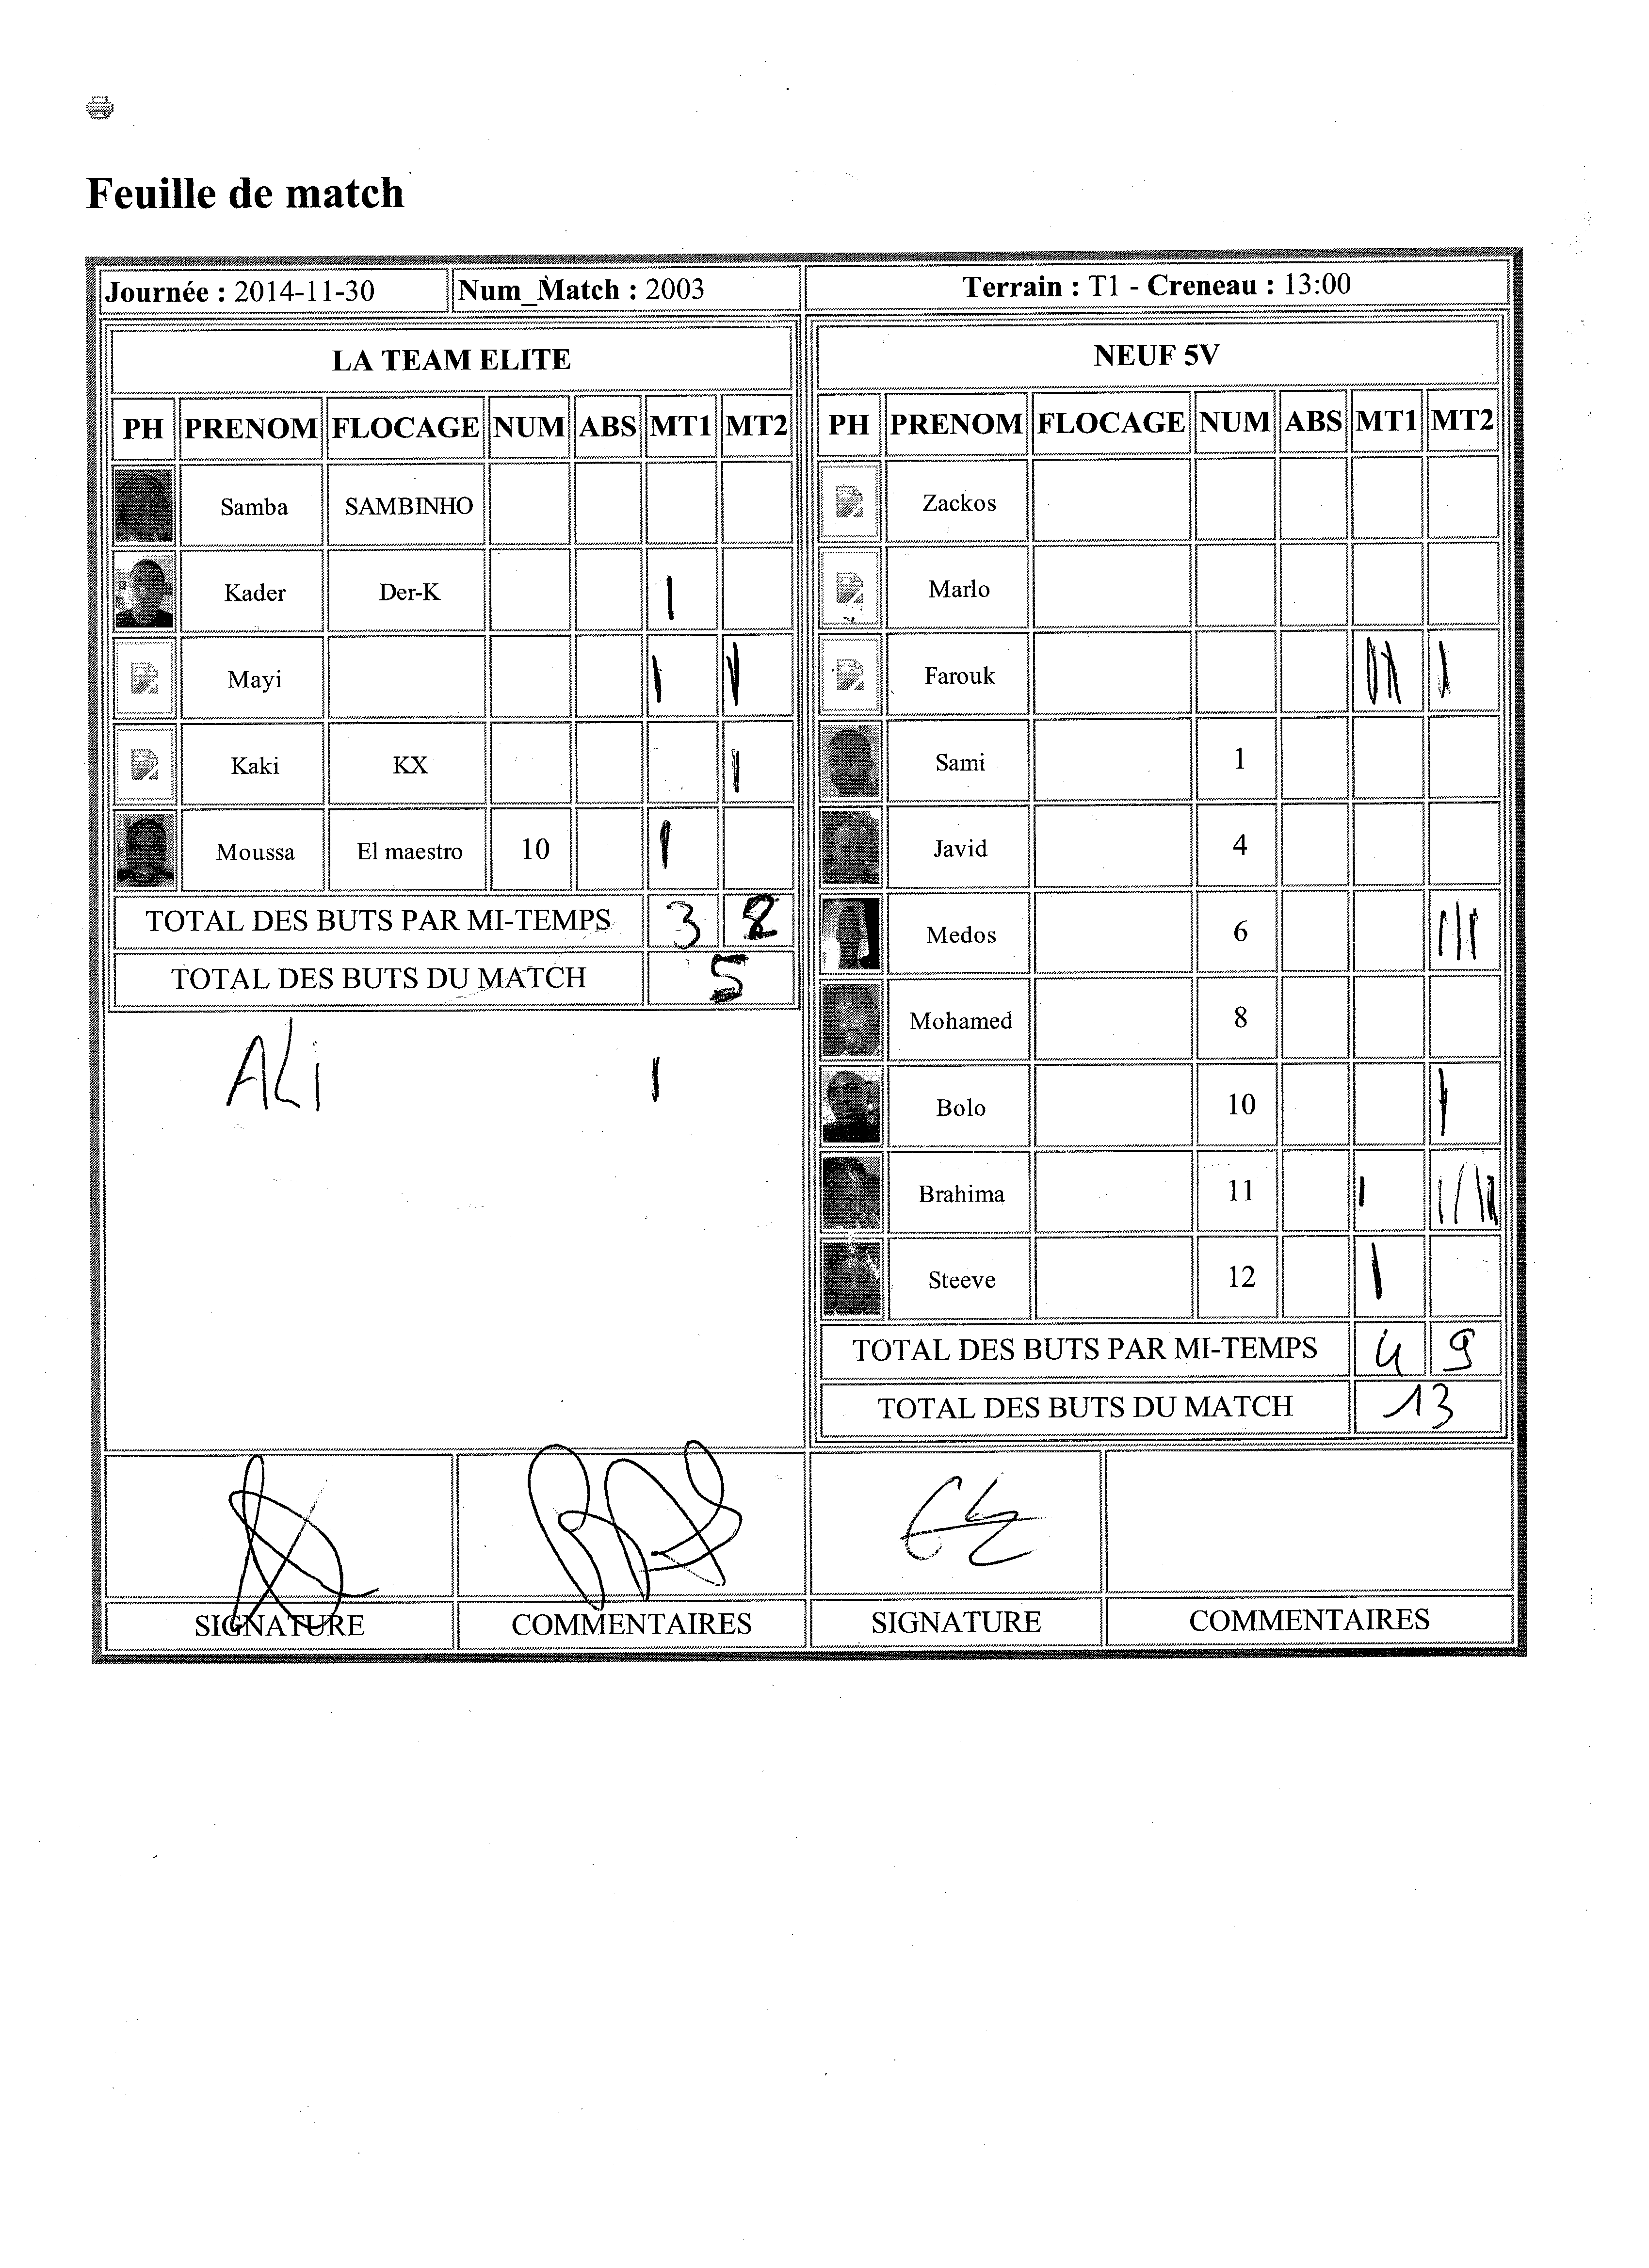 Feuille de match
Journée : 2014-11-30 Num_Match : 2003 Terrain : T1 - Creneau : 13:00
LA TEAM ELITE
PH PRENOM FLOCAGE NUM ABS MT1 MT2
Samba SAMBINHO
Kader Der-K I
Mayi I I
Kaki KX I
Moussa El maestro 10 I
TOTAL DES BUTS PAR MI-TEMPS 3 2
TOTAL DES BUTS DU MATCH 5
ALi I
NEUF 5V
PH PRENOM FLOCAGE NUM ABS MT1 MT2
Zackos
Marlo
Farouk
Sami 1
Javid 4
Medos 6 III
Mohamed 8
Bolo 10 I
Brahima 11 I
Steeve 12 I
TOTAL DES BUTS PAR MI-TEMPS 4 9
TOTAL DES BUTS DU MATCH 13
SIGNATURE COMMENTAIRES SIGNATURE COMMENTAIRES